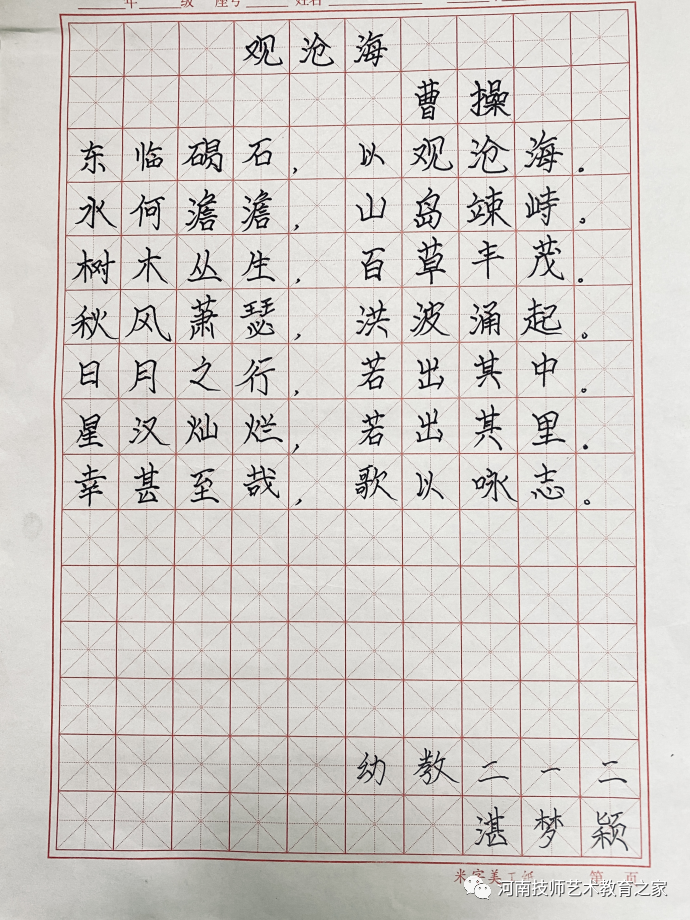 年 级 座号 姓名
观沧海
曹操
东临碣石，以观沧海。
水何澹澹，山岛竦峙。
树木丛生，百草丰茂。
秋风萧瑟，洪波涌起。
日月之行，若出其中。
星汉灿烂，若出其里.
幸甚至哉，歌以咏志。
幼教二一二
湛梦颖
米字美工纸 第 页
河南技师艺术教育之家